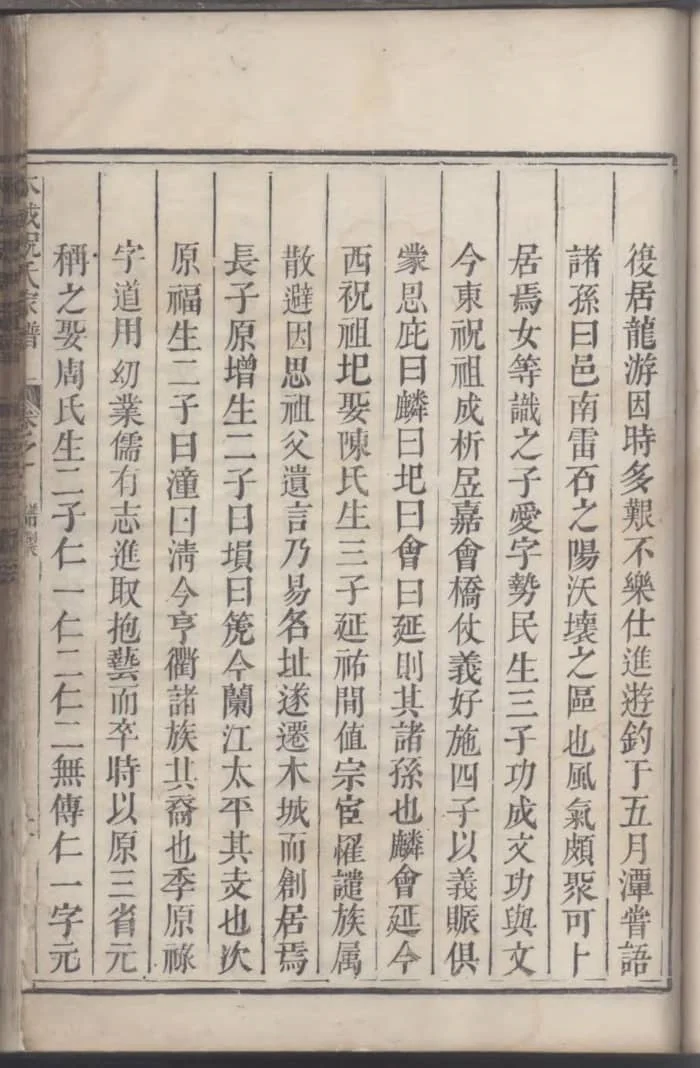 復居龍游因時多艱不樂仕進遊釣于五月潭嘗語
諸孫曰邑南雷石之陽沃壤之區也風氣頗聚可卜
居焉女等識之子愛字勢民生三子功成文功與文
今東祝祖成析居嘉會橋仗義好施四子以義賑俱
蒙恩庇曰麟曰圯曰會曰延則其諸孫也麟會延今
西祝祖圯娶陳氏生三子延祐間值宗宦罹譴族属
散避因思祖父遺言乃易名址遂遷木城而創居焉
長子原增生二子曰塤曰箎今蘭江太平其支也次
原福生二子曰潼曰淸今亨衢諸族其裔也季原祿
字道用幼業儒有志進取抱藝而卒時以原三省元
稱之娶周氏生二子仁一仁二仁二無傳仁一字元
木城祝氏家譜 卷之